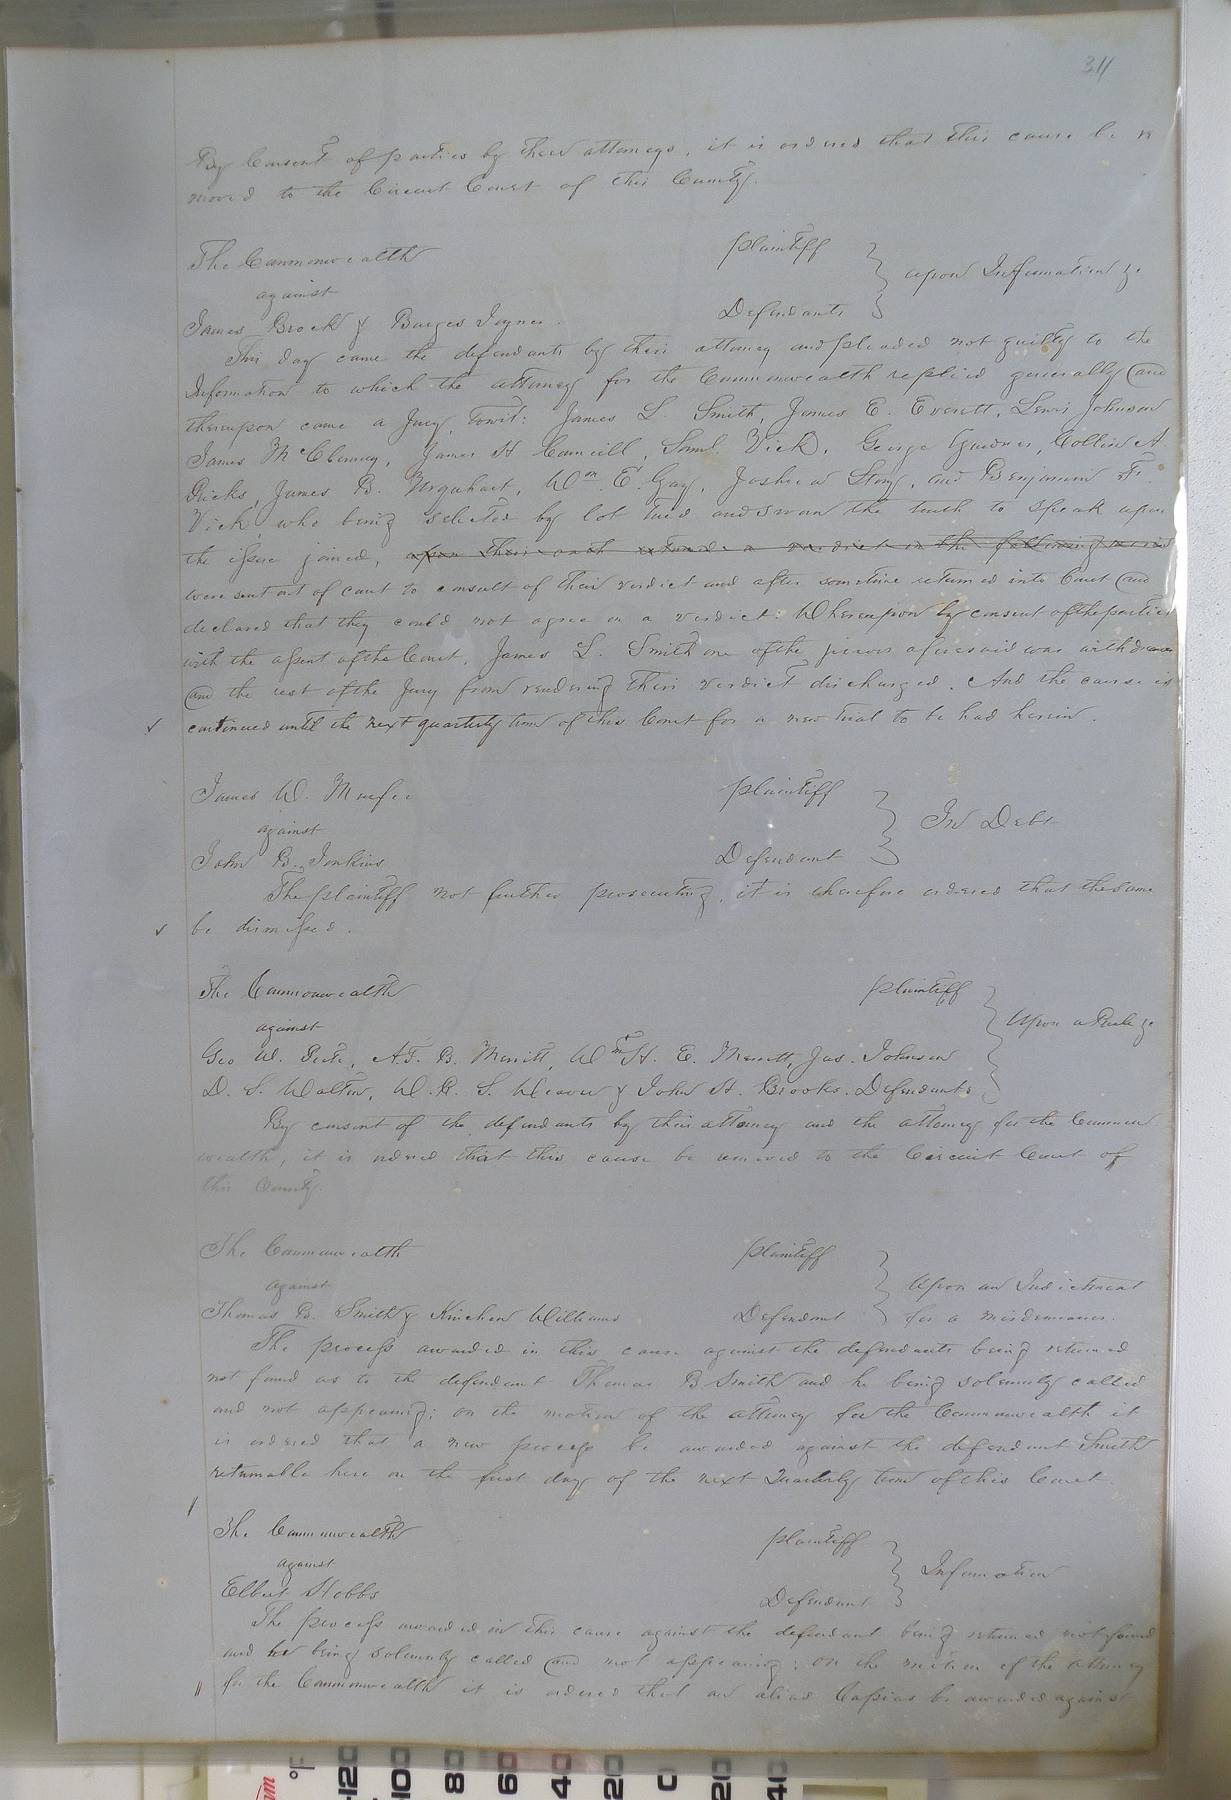 311
By Consent of parties by their attorneys, it is ordered that this cause be re
moved to the Circuit Court of this County.
The Commonwealth plaintiff
against upon Information &c
James Brock & Burges Joyner. Defendants
This day came the defendants by their attorney and pleaded not guilty to the
Information to which the attorney for the Commonwealth replied generally and
thereupon came a Jury, towit: James L. Smith, James E. Everett, Lewis Johnson
James McClenny, James H Councill, Saml. Vick, George Gardner, Collin A
Ricks, James B. Urquhart, Wm. E. Gay, Joshua Story, and Benjamin F.
Vick who being selected by lot tried and sworn the truth to speak upon
the issue joined, upon their oath returned a verdict in the following words
were sent out of court to consult of their verdict and after sometime returned into Court and
declared that they could not agree on a verdict: Whereupon by consent of the parties
with the assent of the Court, James L. Smith one of the jurors aforesaid was withdrawn
and the rest of the Jury from rendering their verdict discharged. And the cause is
continued until the next quarterly term of this Court for a new trial to be had herein.
James W. Murfee plaintiff
against In Debt
John B. Jenkins Defendant
The plaintiff not further prosecuting, it is therefore ordered that the same
be dismissed.
The Commonwealth plaintiff
against Upon a Rule &c
Geo W. Peete, A. F. B. Merritt, Wm H. E. Merritt, Jas. Johnson
D. S. Walton, W. B. S. Weaver & John H. Brooks. Defendants
By consent of the defendants by their attorney and the attorney for the Common
wealth, it is ordered that this cause be removed to the Circuit Court of
this County.
The Commonwealth plaintiff
against Upon an Indictment
Thomas B. Smith & Kinchen Williams Defendant for a misdemeanor.
The process awarded in this cause against the defendants being returned
not found as to the defendant Thomas B Smith and he being solemnly called
and not appearing; on the motion of the attorney for the Commonwealth it
is ordered that a new process be awarded against the defendant Smith
returnable here on the first day of the next Quarterly term of this Court
The Commonwealth plaintiff
against Information
Elbert Hobbs Defendant
The process awarded in this cause against the defendant being returned not found
and he being solemnly called and not appearing; on the motion of the attorney
for the Commonwealth it is ordered that an alias Capias be awarded against
°F 120 100 80 60 40 20 0 20 40